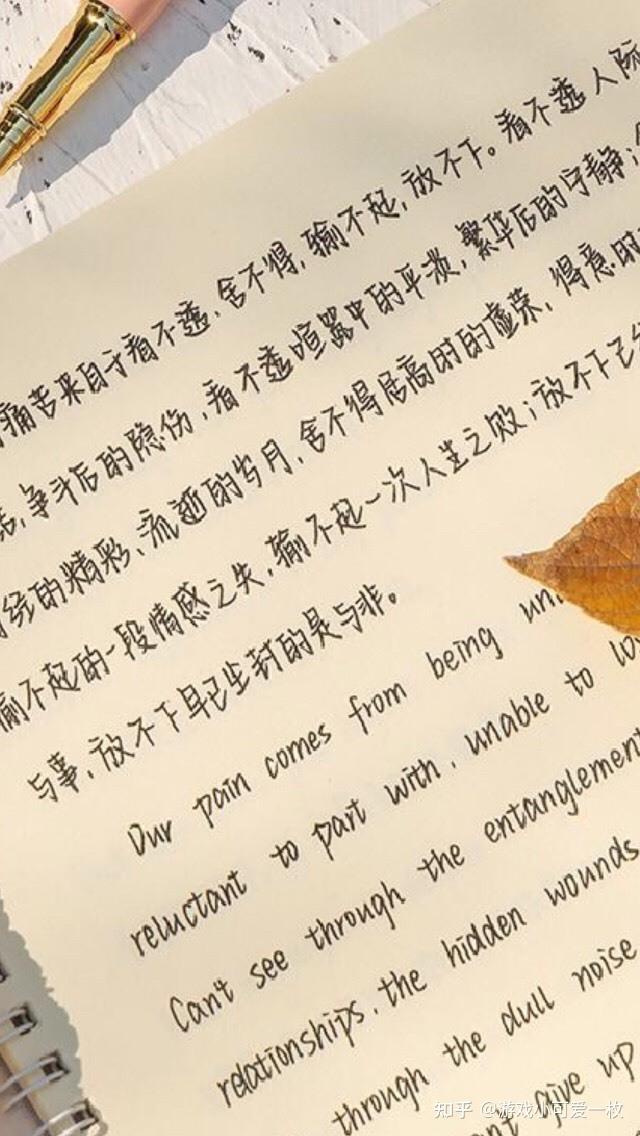 痛苦来自于看不透,舍不得,输不起,放不下。看不透人际
争斗后的隐伤,看不透喧嚣中的平淡,繁华后的宁静;
的精彩、流逝的岁月,舍不得居高时的虚荣,得意时
输不起的一段情感之失,输不起一次人生之败;放不下已
与事,放不下早已尘封的是与非。
Our pain comes from being un
reluctant to part with, unable to lo
Can't see through the entanglement
relationships, the hidden wounds
through the dull noise
give up
知乎 @游戏小可爱一枚